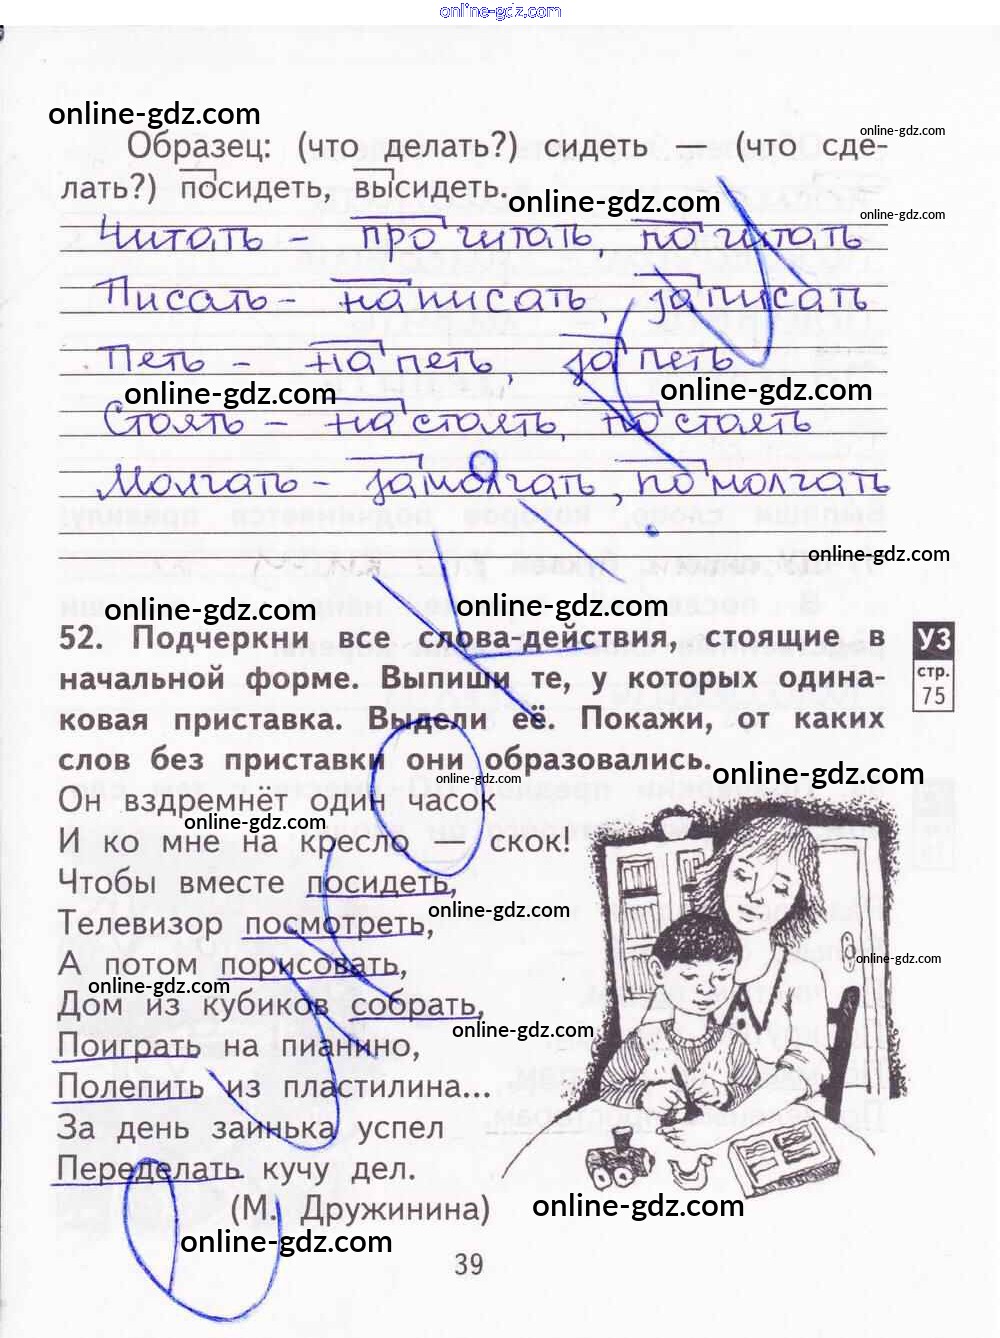 online-gdz.com
online-gdz.com
Образец: (что делать?) сидеть — (что сде-
online-gdz.com
лать?) посидеть, высидеть.
online-gdz.com
online-gdz.com
Читать - прочитать, почитать
Писать - написать, записать
Петь - напеть, запеть
online-gdz.com
online-gdz.com
Стоять - настоять, постоять
Молчать - замолчать, помолчать
online-gdz.com
online-gdz.com
online-gdz.com
52. Подчеркни все слова-действия, стоящие в
начальной форме. Выпиши те, у которых одина-
ковая приставка. Выдели её. Покажи, от каких
слов без приставки они образовались.
У3
стр.
75
online-gdz.com
online-gdz.com
Он вздремнёт один часок
online-gdz.com
И ко мне на кресло — скок!
Чтобы вместе посидеть,
online-gdz.com
Телевизор посмотреть,
А потом порисовать,
online-gdz.com
online-gdz.com
Дом из кубиков собрать,
online-gdz.com
Поиграть на пианино,
Полепить из пластилина...
За день заинька успел
Переделать кучу дел.
(М. Дружинина)
online-gdz.com
online-gdz.com
39